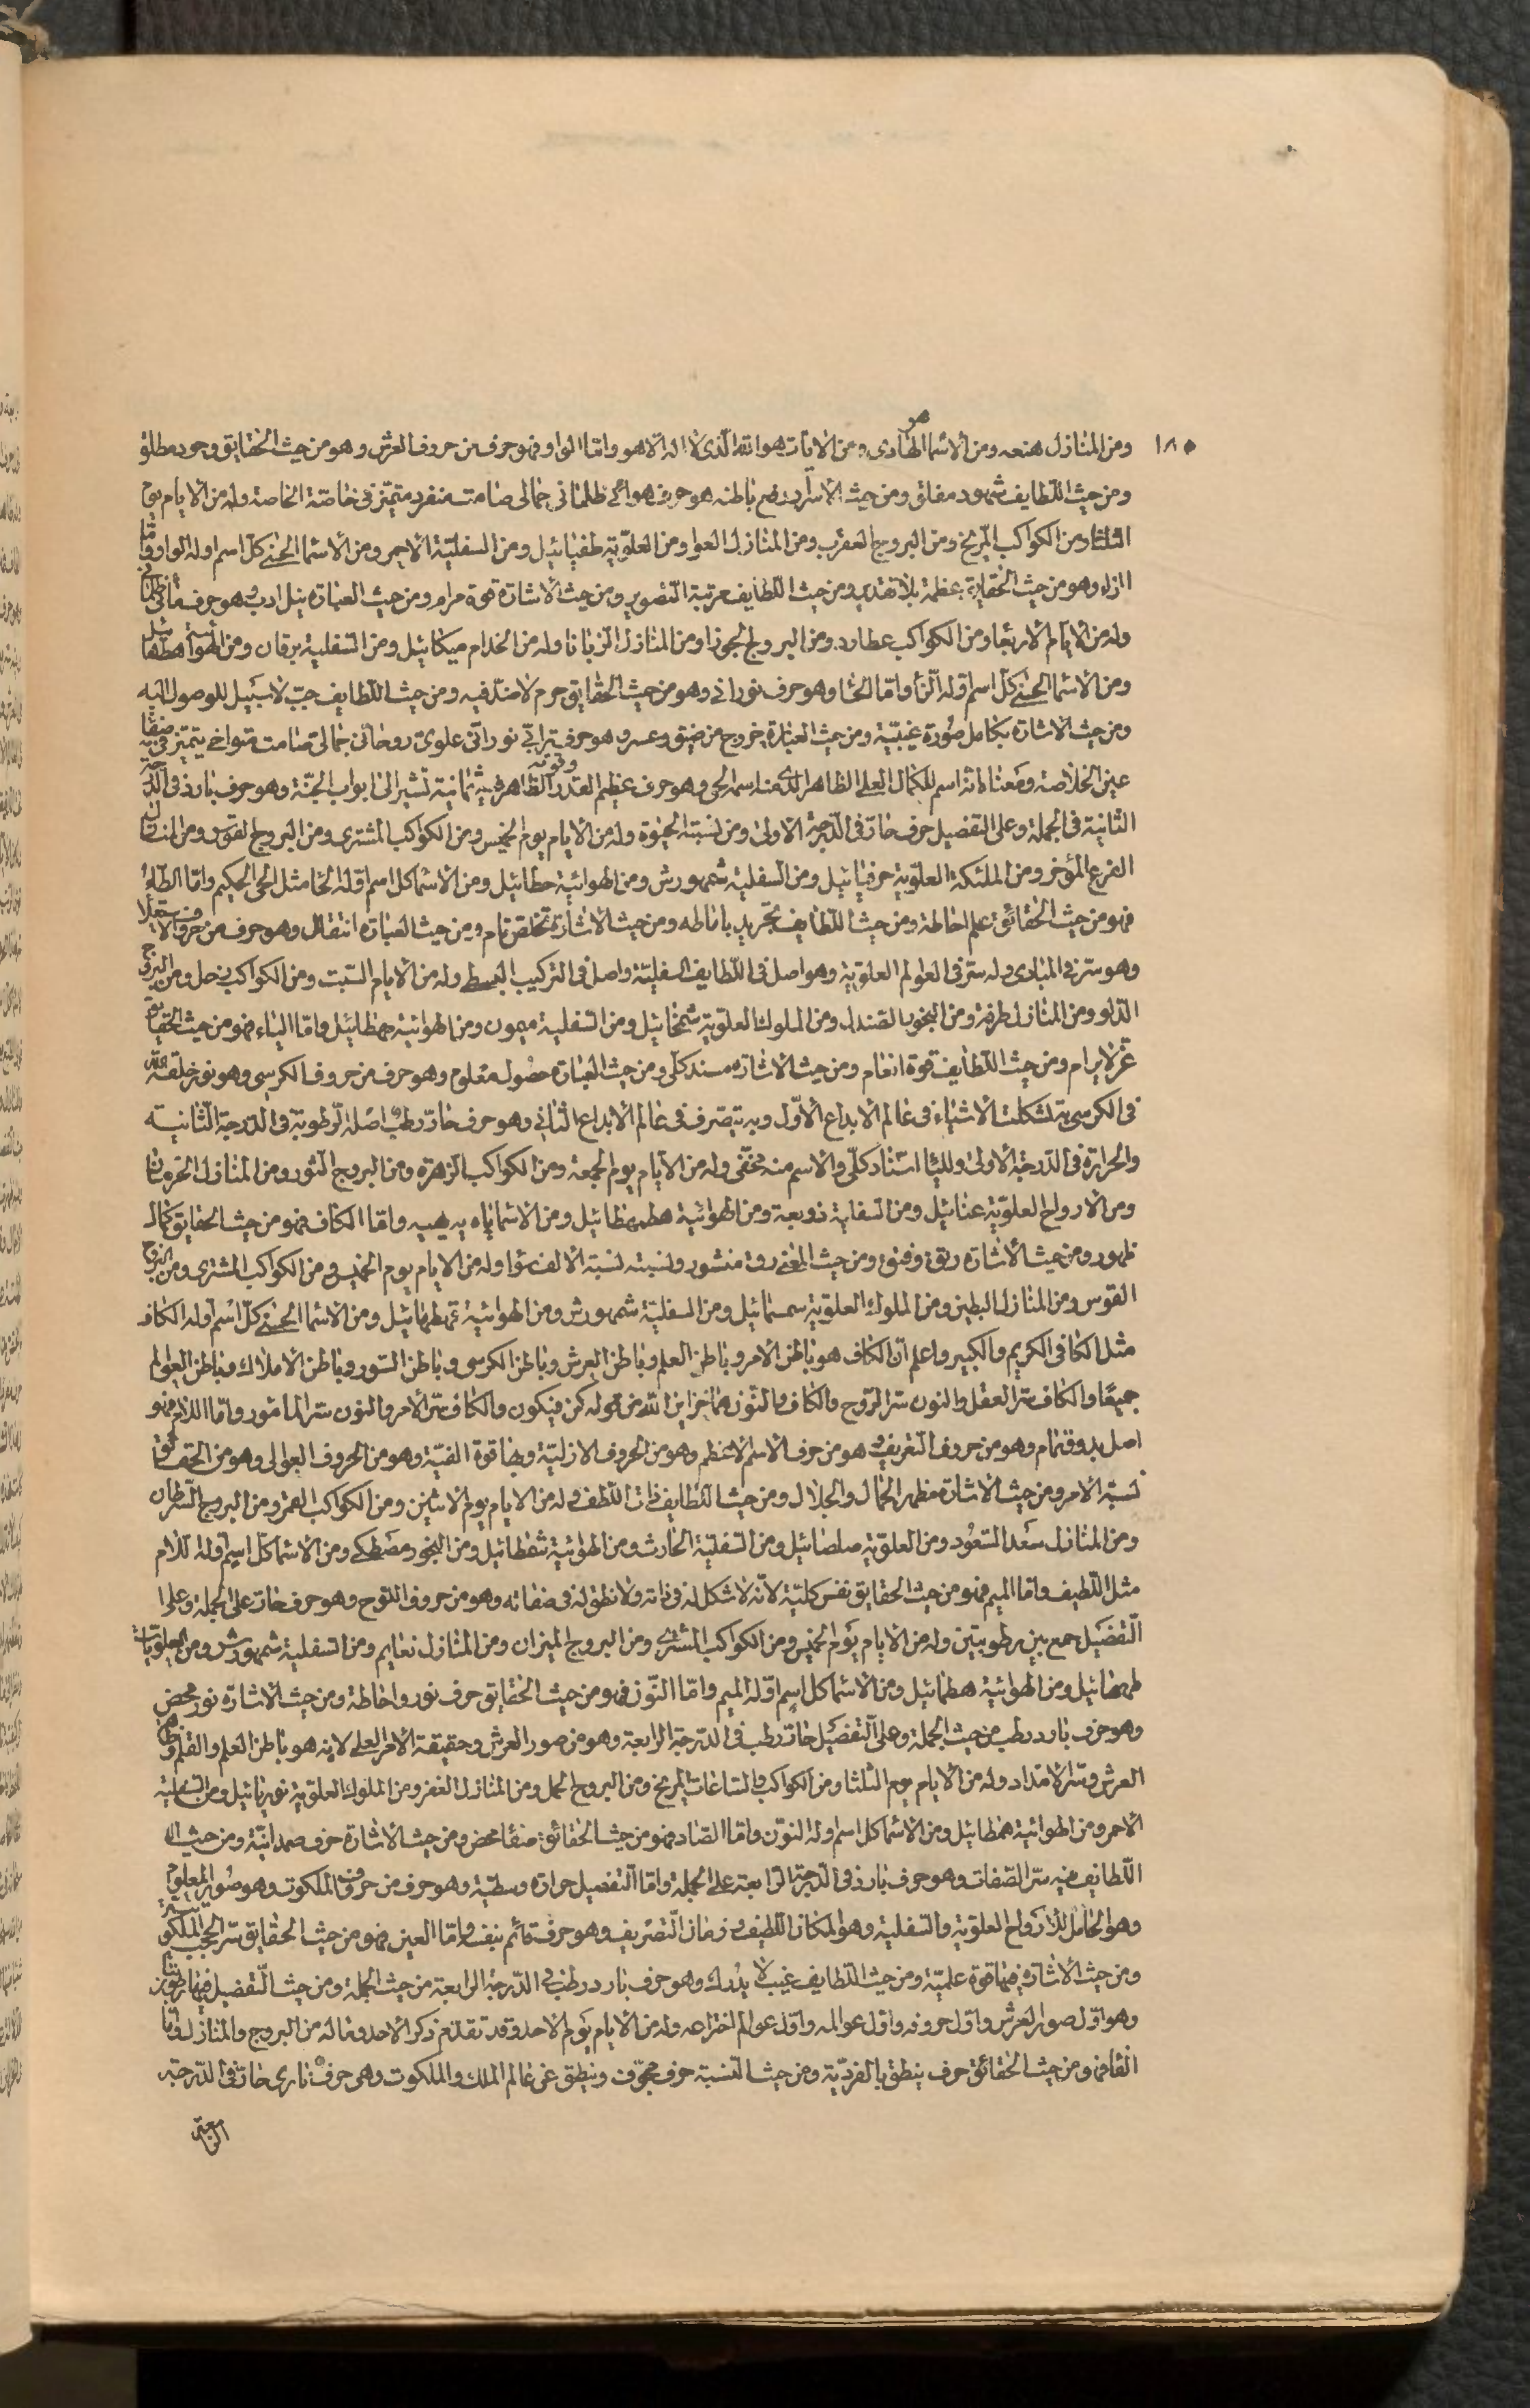 ١٨٠
ومن المنازل هنعه ومن الاسما الهادى هو ومن الايات هو الله الذى لا اله الا هو واما الواو فهو حرف من حروف العرش وهو من حيث الحقايق وجود مطلق
ومن حيث اللطايف شهود مفلق ومن حيث الاسرار باطنه هو حرف هوائى ظلمانى جمالى صامت منفرد متميز فى خاصة الخاصة وله من الايام يوم
الثلثا ومن الكواكب المريخ ومن البروج العقرب ومن المنازل العوا ومن العلوية طفيائيل ومن السفلية الاحمر ومن الاسما الحسنى كل اسم اوله الواو واما
الزاء وهو من حيث الحقايق عظمة بلا تقدير ومن حيث اللطايف مرتبة التصوير ومن حيث الاشارة قوة مرام ومن حيث العبارة نيل ادب وهو حرف مائى ظلمانى
وله من الايام الاربعا ومن الكواكب عطارد ومن البروج الجوزا ومن المنازل الزبانا وله من الخدام ميكائيل ومن السفلية برقان ومن الهوائية
ومن الاسما الحسنى كل اسم اوله الزاء واما الحا وهو حرف نورانى وهو من حيث الحقايق حرم لا ضد فيه ومن حيث اللطايف حب لا سبيل للوصول اليه
ومن حيث الاشارة بكامل صورة غيبية ومن حيث العبارة خروج من ضيق وعسر وهو حرف ترابى نورانى علوى روحانى جمالى صامت متواخى يتميز فى صفا
عين الخلاصة ومعناه لانه اسم للكمال العلى الظاهر الذى منه اسمه الحى وهو حرف عظيم القدر وقوته الظاهرة فيه ثمانية تشير الى ابواب الجنة وهو حرف بارد فى الدرجة
الثانية فى الجملة وعلى التفصيل حرف حار فى الدرجة الاولى ومن نسبته الحيوة وله من الايام يوم الخميس ومن الكواكب المشترى ومن البروج القوس ومن المنازل
الفرع المؤخر ومن الملئكة العلوية حرفيائيل ومن السفلية شمهورش ومن الهوائية حطائيل ومن الاسما كل اسم اوله الحا مثل الحى الحكيم واما الطاء
فهو من حيث الحقائق علم احاطة ومن حيث اللطايف تجريد باناطه ومن حيث الاشارة تخلص تام ومن حيث العبارة انتقال وهو حرف من حروف الاستعلا
وهو سر فى المبادى وله سر فى العوالم العلوية وهو اصل فى اللطايف السفلية واصل فى التركيب البسط وله من الايام السبت ومن الكواكب زحل ومن البروج
الدلو ومن المنازل طرفة ومن البخور الصندل ومن الملوك العلوية شمخائيل ومن السفلية ميمون ومن الهوائية جهطائيل واما الياء فهو من حيث الحقايق
عز لا يرام ومن حيث اللطايف قوة انعام ومن حيث الاشارة مسند كلى ومن حيث العبارة حصول معلوم وهو حرف من حروف الكرسى وهو نور خلقه الله
فى الكرسى به تشكلت الاشياء فى عالم الابداع الاول وبه يتصرف فى عالم الابداع الثانى وهو حرف حار رطب اصله الرطوبة فى الدرجة الثانيه
والحرارة فى الدرجة الاولى ولليا اسناد كلى والاسم منه مختفى وله من الايام يوم الجمعة ومن الكواكب الزهرة ومن البروج الثور ومن المنازل الخرتان
ومن الارواح العلوية عنائيل ومن السفلية ذوبعة ومن الهوائية هطمهطائيل ومن الاسما ياه يه هيه واما الكاف فهو من حيث الحقايق كمال
ظهور ومن حيث الاشارة رتق وفتق ومن حيث المعنى رق منشور ونسبته نسبة الالف سواء وله من الايام يوم الخميس ومن الكواكب المشترى ومن البروج
القوس ومن المنازل البطين ومن الملوك العلوية سمسمائيل ومن السفلية شمهورش ومن الهوائية ومن الاسما الحسنى كل اسم اوله الكاف
مثل الكافى الكريم والكبير واعلم ان الكاف هو باطن الامر وباطن العلم وباطن العرش وباطن الكرسى وباطن السور وباطن الاملاك وباطن العوالم
جميعا والكاف سر العقل والنون سر الروح والكاف والنون هما خزاين الله من قوله كن فيكون والكاف سر الامر والنون سر المامور واما اللام فهو
اصل بدو وتمام وهو من حروف التعريف وهو من حرف الاسم الاعظم وهو من الحروف الازلية وبها قوة الفية وهو من الحروف العوالى وهو من الحقائق
نسبة الامر ومن حيث الاشارة مظهر الجمال والجلال ومن حيث اللطايف ذات اللطف وله من الايام يوم الاثنين ومن الكواكب القمر ومن البروج السرطان
ومن المنازل سعد السعود ومن العلوية صلصائيل ومن السفلية الحارث ومن الهوائية شفطائيل ومن البخور مصطكى ومن الاسما كل اسم اوله اللام
مثل اللطيف واما الميم فهو من حيث الحقايق نفس كلية لانه لا شكل له فى ذاته ولا نطق له فى صفاته وهو من حروف اللوح وهو حرف حار على الجملة وعلى
التفصيل جمع بين رطوبتين وله من الايام يوم الخميس ومن الكواكب المشترى ومن البروج الميزان ومن المنازل نعايم ومن السفلية شمهورش ومن العلويات
طمهائيل ومن الهوائية هطمائيل ومن الاسما كل اسم اوله الميم واما النون فهو من حيث الحقايق حرف نور واحاطة ومن حيث الاشارة نور محض
وهو حرف بارد رطب من حيث الجملة وعلى التفصيل حار رطب فى الدرجة الرابعة وهو من صور العرش وحقيقة الامر العلى لانه هو باطن العلم والقلم وظاهر
العرش وسر الامتداد وله من الايام يوم الثلثا ومن الكواكب والساعات المريخ ومن البروج الحمل ومن المنازل الغفر ومن الملوك العلوية نوريائيل ومن السفلية
الاحمر ومن الهوائية همطائيل ومن الاسما كل اسم اوله النون واما الصاد فهو من حيث الحقائق صفا محض ومن حيث الاشارة حرف صمدانية ومن حيث
اللطايف فيه سر الصفات وهو حرف بارد فى الدرجة الرابعة على الجملة واما التفصيل حرارة وسطية وهو حرف من حروف الملكوت وهو صور المعلوم
وهو الحامل للارواح العلوية والسفلية وهو المكان اللطيف وزمان التصريف وهو حرف قائم بنفسه واما العين فهو من حيث الحقايق سر الحجب الملكوتية
ومن حيث الاشارة فيها قوة علمية ومن حيث اللطايف غيب لا يدرك وهو حرف بارد رطب فى الدرجة الرابعة من حيث الجملة ومن حيث التفصيل فيها رطوبتان
وهو اول صور العرش واول حروفه واول عوالمه واول عوالم اختراعه وله من الايام يوم الاحد وقد تقدم ذكر الاحد وماله من البروج والمنازل واما
القاف فهو من حيث الحقائق حرف ينطق بالفردية ومن حيث النسبة حرف مجوف وينطق عن عالم الملك والملكوت وهى حرف نارى حار فى الدرجة
الرابعة